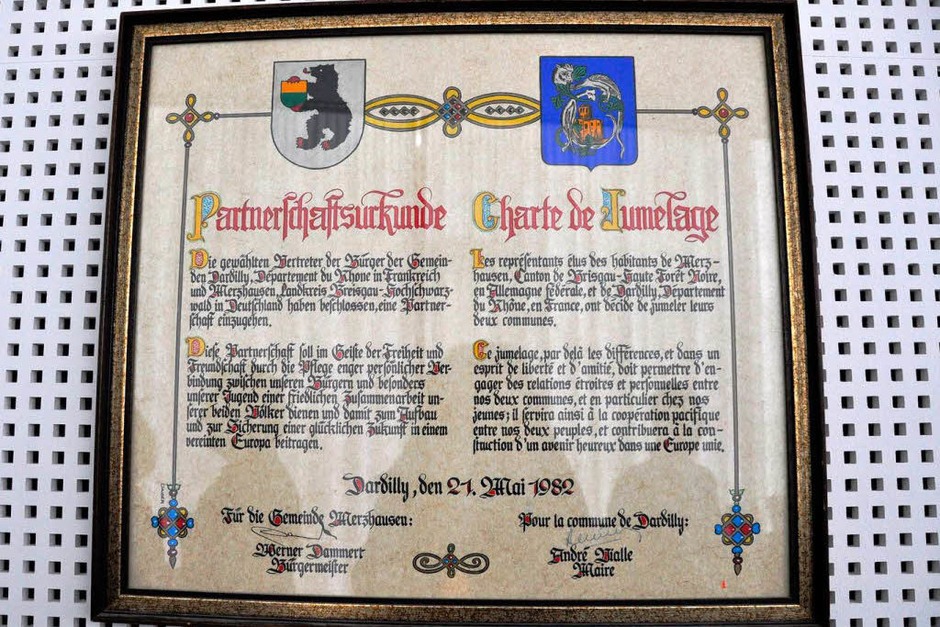 Partnerschaftsurkunde
Die gewählten Vertreter der Bürger der Gemein-
den Dardilly, Département du Rhône in Frankreich
und Merzhausen, Landkreis Breisgau-Hochschwarz-
wald in Deutschland haben beschlossen, eine Partner-
schaft einzugehen.
Diese Partnerschaft soll im Geiste der Freiheit und
Freundschaft durch die Pflege enger persönlicher Ver-
bindung zwischen unseren Bürgern und besonders
unserer Jugend einer friedlichen Zusammenarbeit un-
serer beiden Völker dienen und damit zum Aufbau
und zur Sicherung einer glücklichen Zukunft in einem
vereinten Europa beitragen.
Charte de Jumelage
Les représentants élus des habitants de Merz-
hausen, Canton de Brisgau-Haute Forêt Noire,
en Allemagne fédérale, et de Dardilly, Département
du Rhône, en France, ont décidé de jumeler leurs
deux communes.
Ce jumelage, par delà les différences, et dans un
esprit de liberté et d'amitié, doit permettre d'en-
gager des relations étroites et personnelles entre
nos deux communes, et en particulier chez nos
jeunes; il servira ainsi à la coopération pacifique
entre nos deux peuples, et contribuera à la con-
struction d'un avenir heureux dans une Europe unie.
Dardilly, den 21. Mai 1982
Für die Gemeinde Merzhausen:
Werner Dammert
Bürgermeister
Pour la commune de Dardilly:
André Vialle
Maire